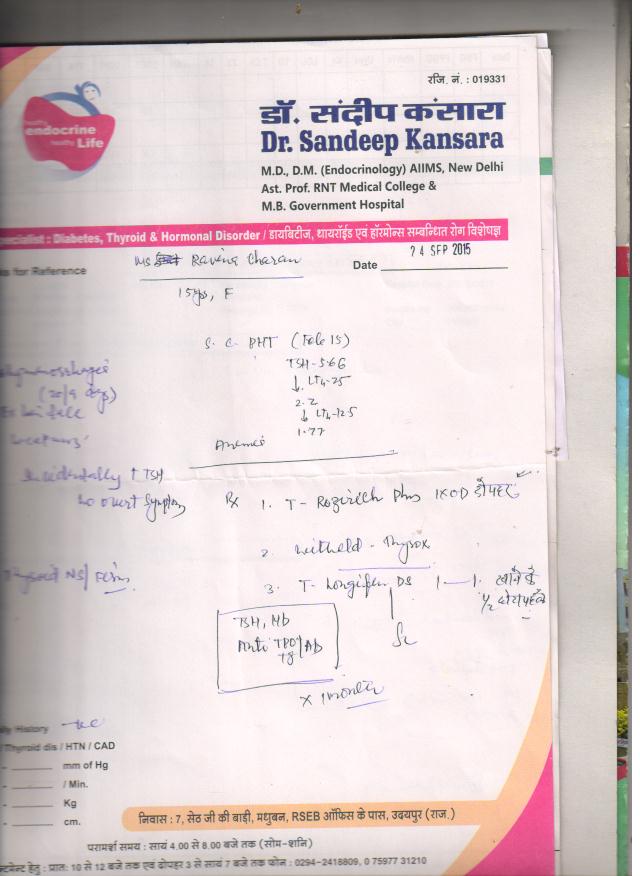 रजि. नं. : 019331
healthy
endocrine
healthy Life
डॉ. संदीप कंसारा
Dr. Sandeep Kansara
M.D., D.M. (Endocrinology) AIIMS, New Delhi
Ast. Prof. RNT Medical College &
M.B. Government Hospital
pecialist : Diabetes, Thyroid & Hormonal Disorder / डायबिटीज, थायराईड एवं हॉरमोन्स सम्बन्धित रोग विशेषज्ञ
ks for Reference
Ms Ravina Charan
Date 24 SEP 2015
15 yrs, F
(Feb 15)
TSH - 5.66
↓ LT4 - 25
2.2
↓ LT4 - 12.5
1.77
Anemia
Incidentally ↑ TSH
no overt symptoms
Rx 1. T - Plus 1X OD दोपहर
2. withheld - Thyrox
3. T - Longifer DS 1 — 1. खाने के
1/2 घंटा पहले
Thyroid NS / Firm
TSH, Hb
Anti TPO / Ab
Tg
x 1 month
ly History
Thyroid dis / HTN / CAD
- mm of Hg
- / Min.
- Kg
- cm.
निवास : 7, सेठ जी की बाड़ी, मधुबन, RSEB ऑफिस के पास, उदयपुर (राज.)
परामर्श समय : सायं 4.00 से 8.00 बजे तक (सोम-शनि)
न्टमेन्ट हेतु : प्रातः 10 से 12 बजे तक एवं दोपहर 3 से सायं 7 बजे तक फोन : 0294-2418809, 0 75977 31210